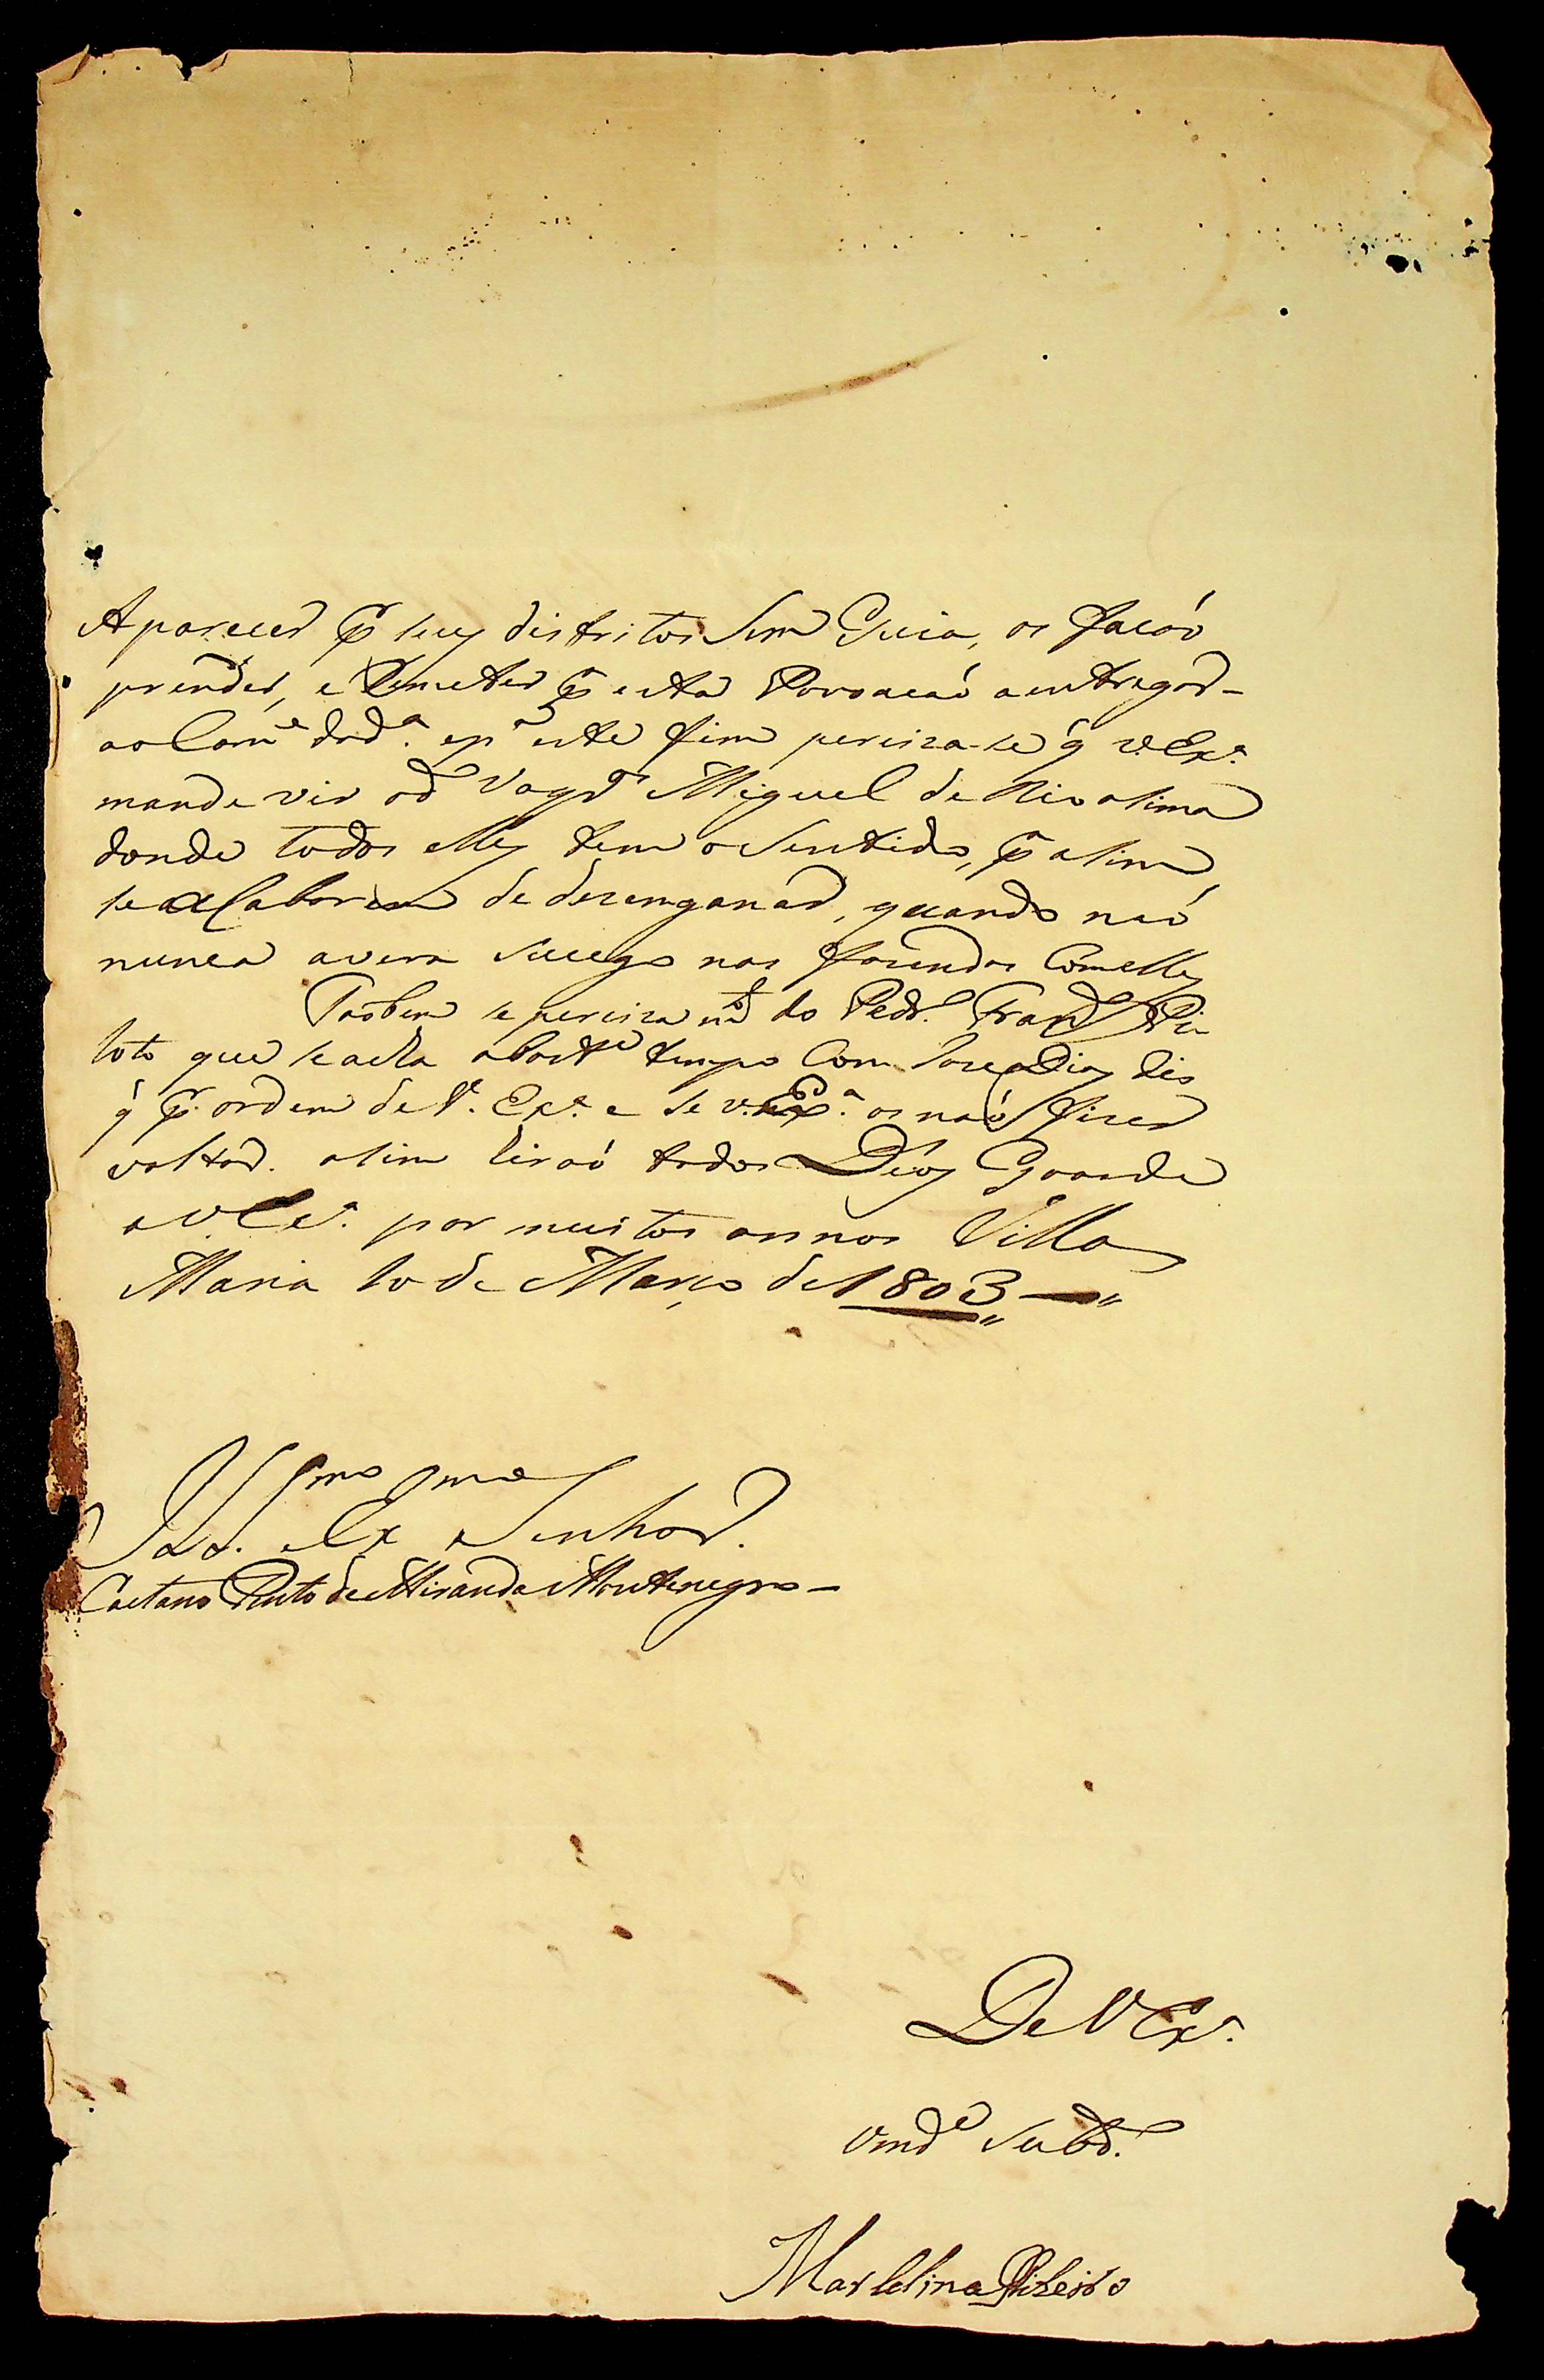 Aparecer p.ª seus distritos Sem Guia, os facáo
prender, e Remeter p.ª esta Povoacaó aentregar-
ao Com.e dad.ª ep.ª este fim perciza-se q̃ V.Ex.ª
mande vir od.º Miguel de
donde todos elles tem o Sentido, p.ª asim
se acabarem de dezemganar, quando naó
nunca avera Sucego nas fazendas Com elles
Taobem se perciza do Ped.º Fran.co Pi
loto que seacha abast.e tempo Com Joze Dias dis
q̃ p.r ordem de V. Ex.ª e Se V. Ex.ª os naó fizer
voltar. asim hiraó todos Deos Goarde
a V.Ex.ª por muitos annos Villa
Maria 10 de Março de 1803
Ill.mo Ex.mo Senhor.
Caetano Pinto de Miranda Montenegro-
De V Ex.ª
Subd.º
Marcelino Ribeiro